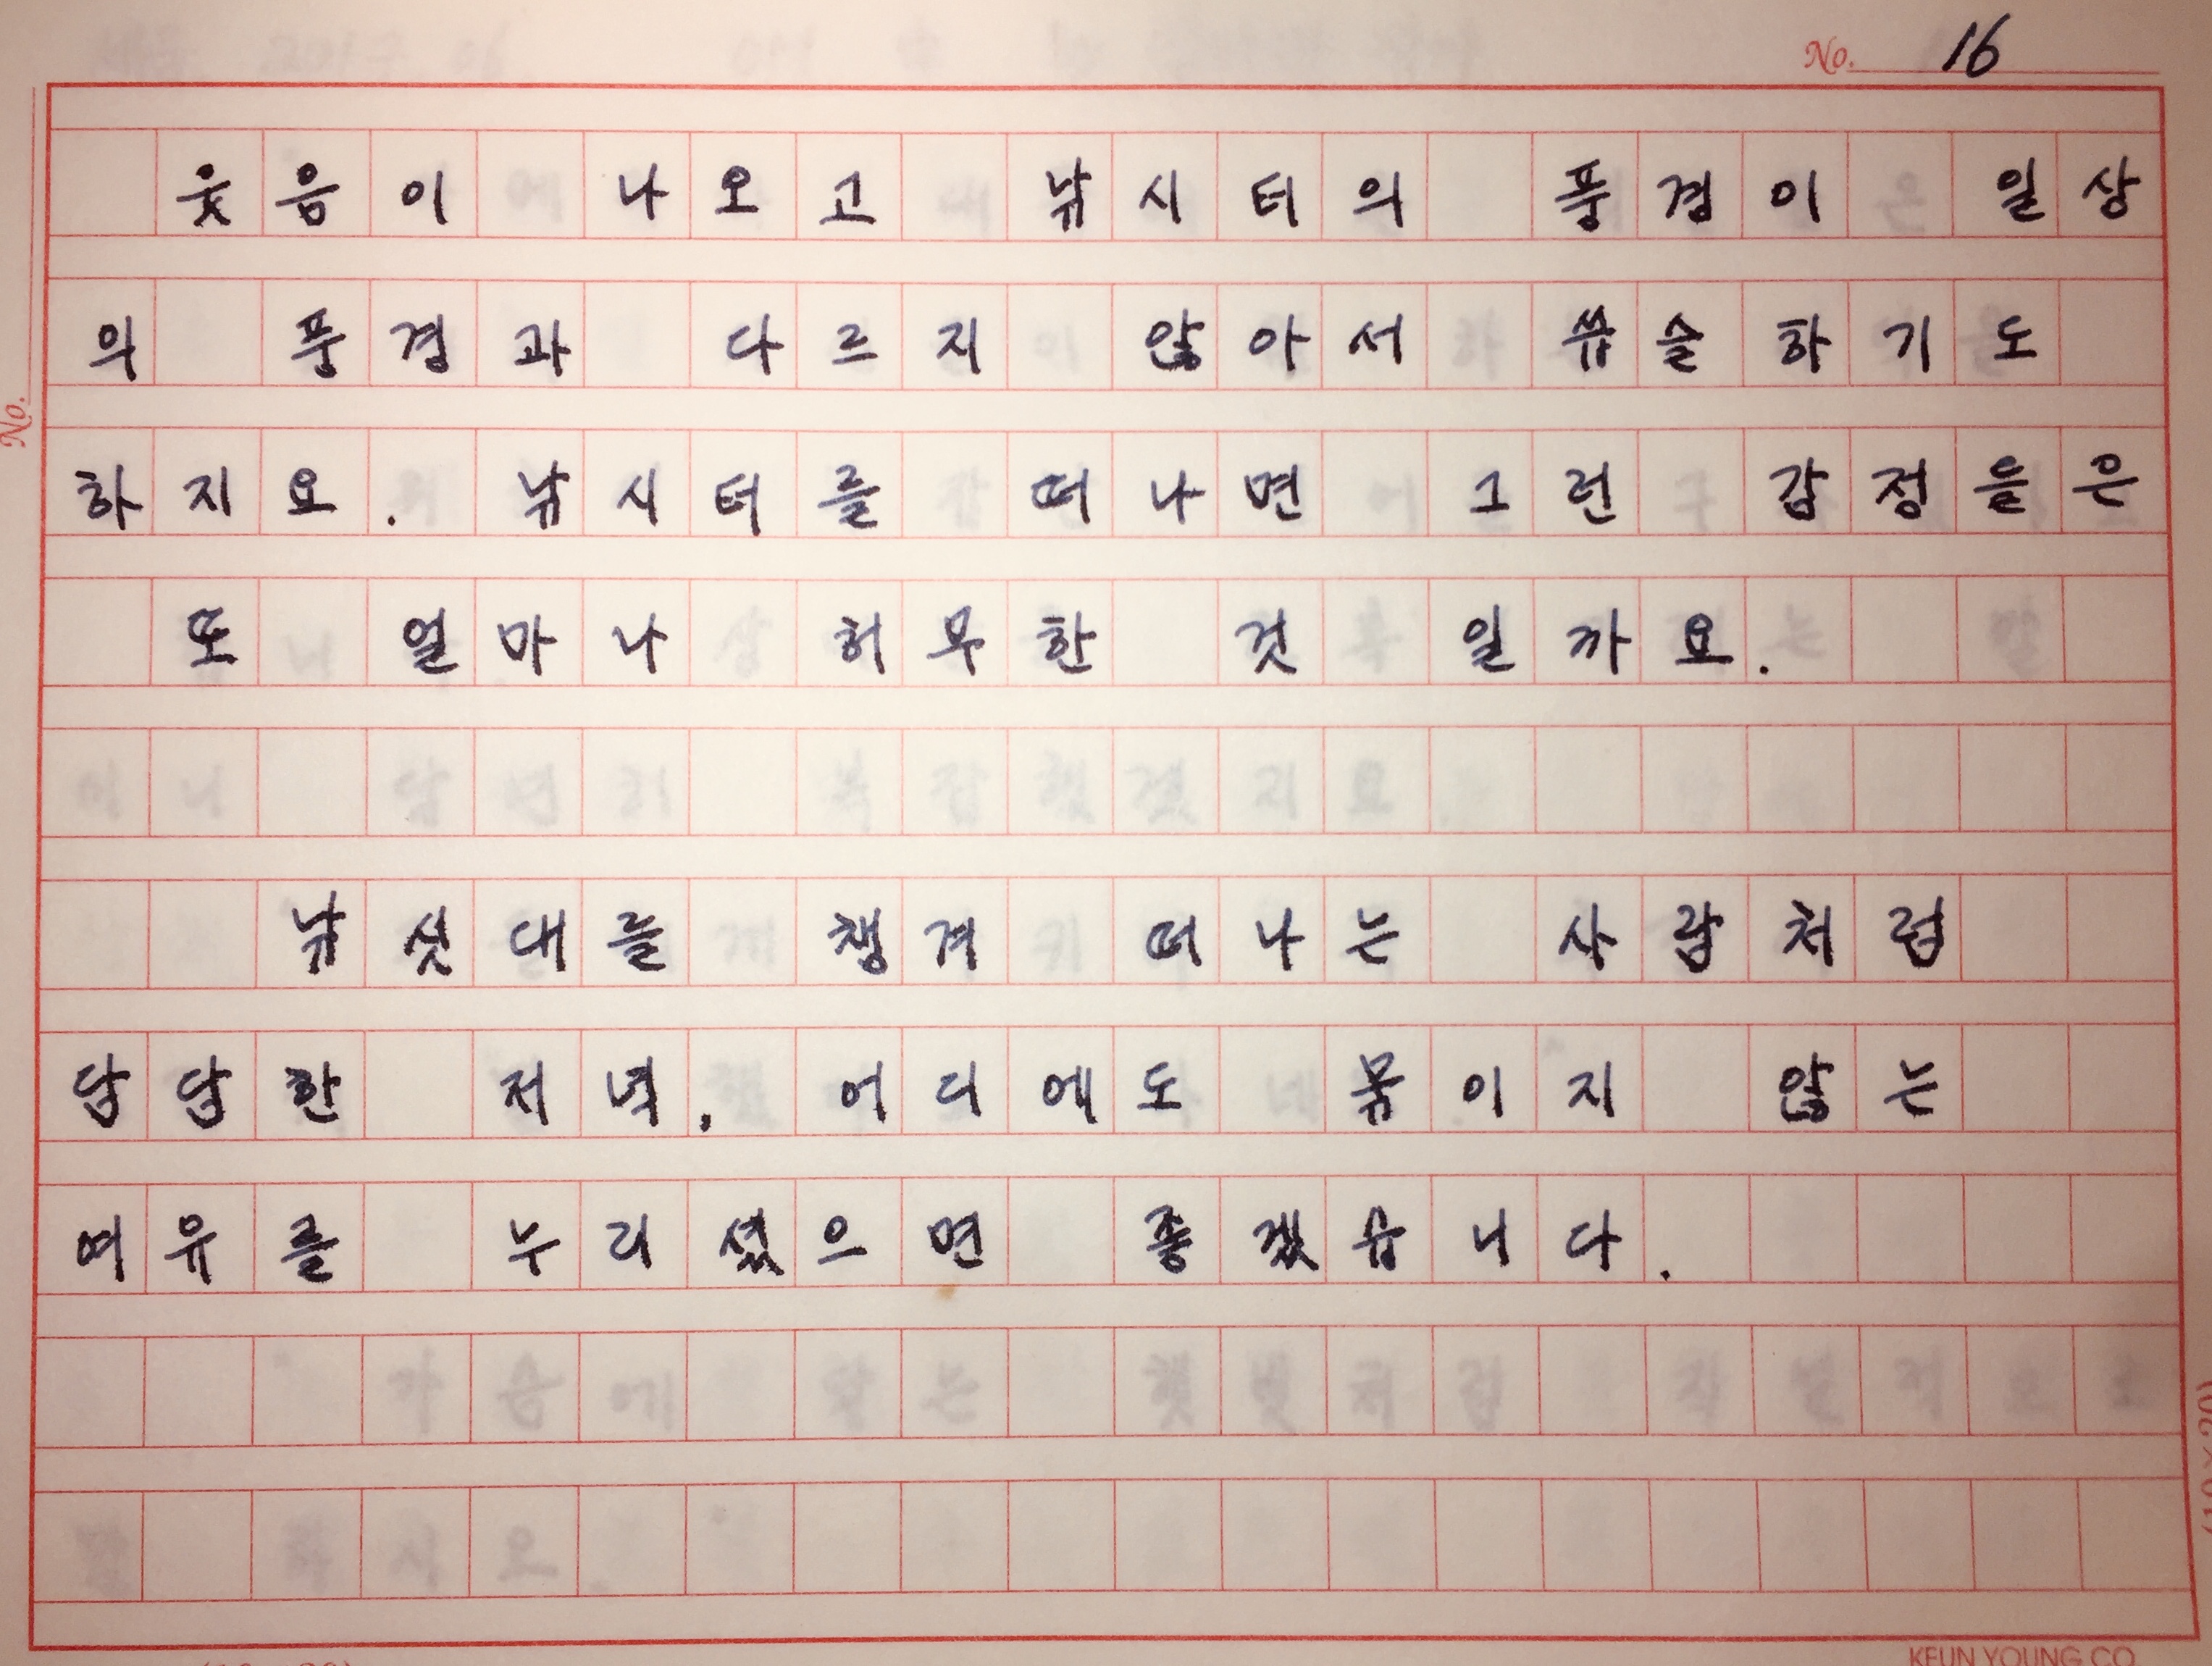 No. 16
웃음이 나오고 낚시터의 풍경이 일상
의 풍경과 다르지 않아서 쓸슬하기도
하지요. 낚시터를 떠나면 그런 감정들은
또 얼마나 허무한 것 일까요.
낚싯대를 챙겨 떠나는 사람처럼
답답한 저녁. 어디에도 묶이지 않는
여유를 누리셨으면 좋겠습니다.
No.
KEUN YOUNG CO.